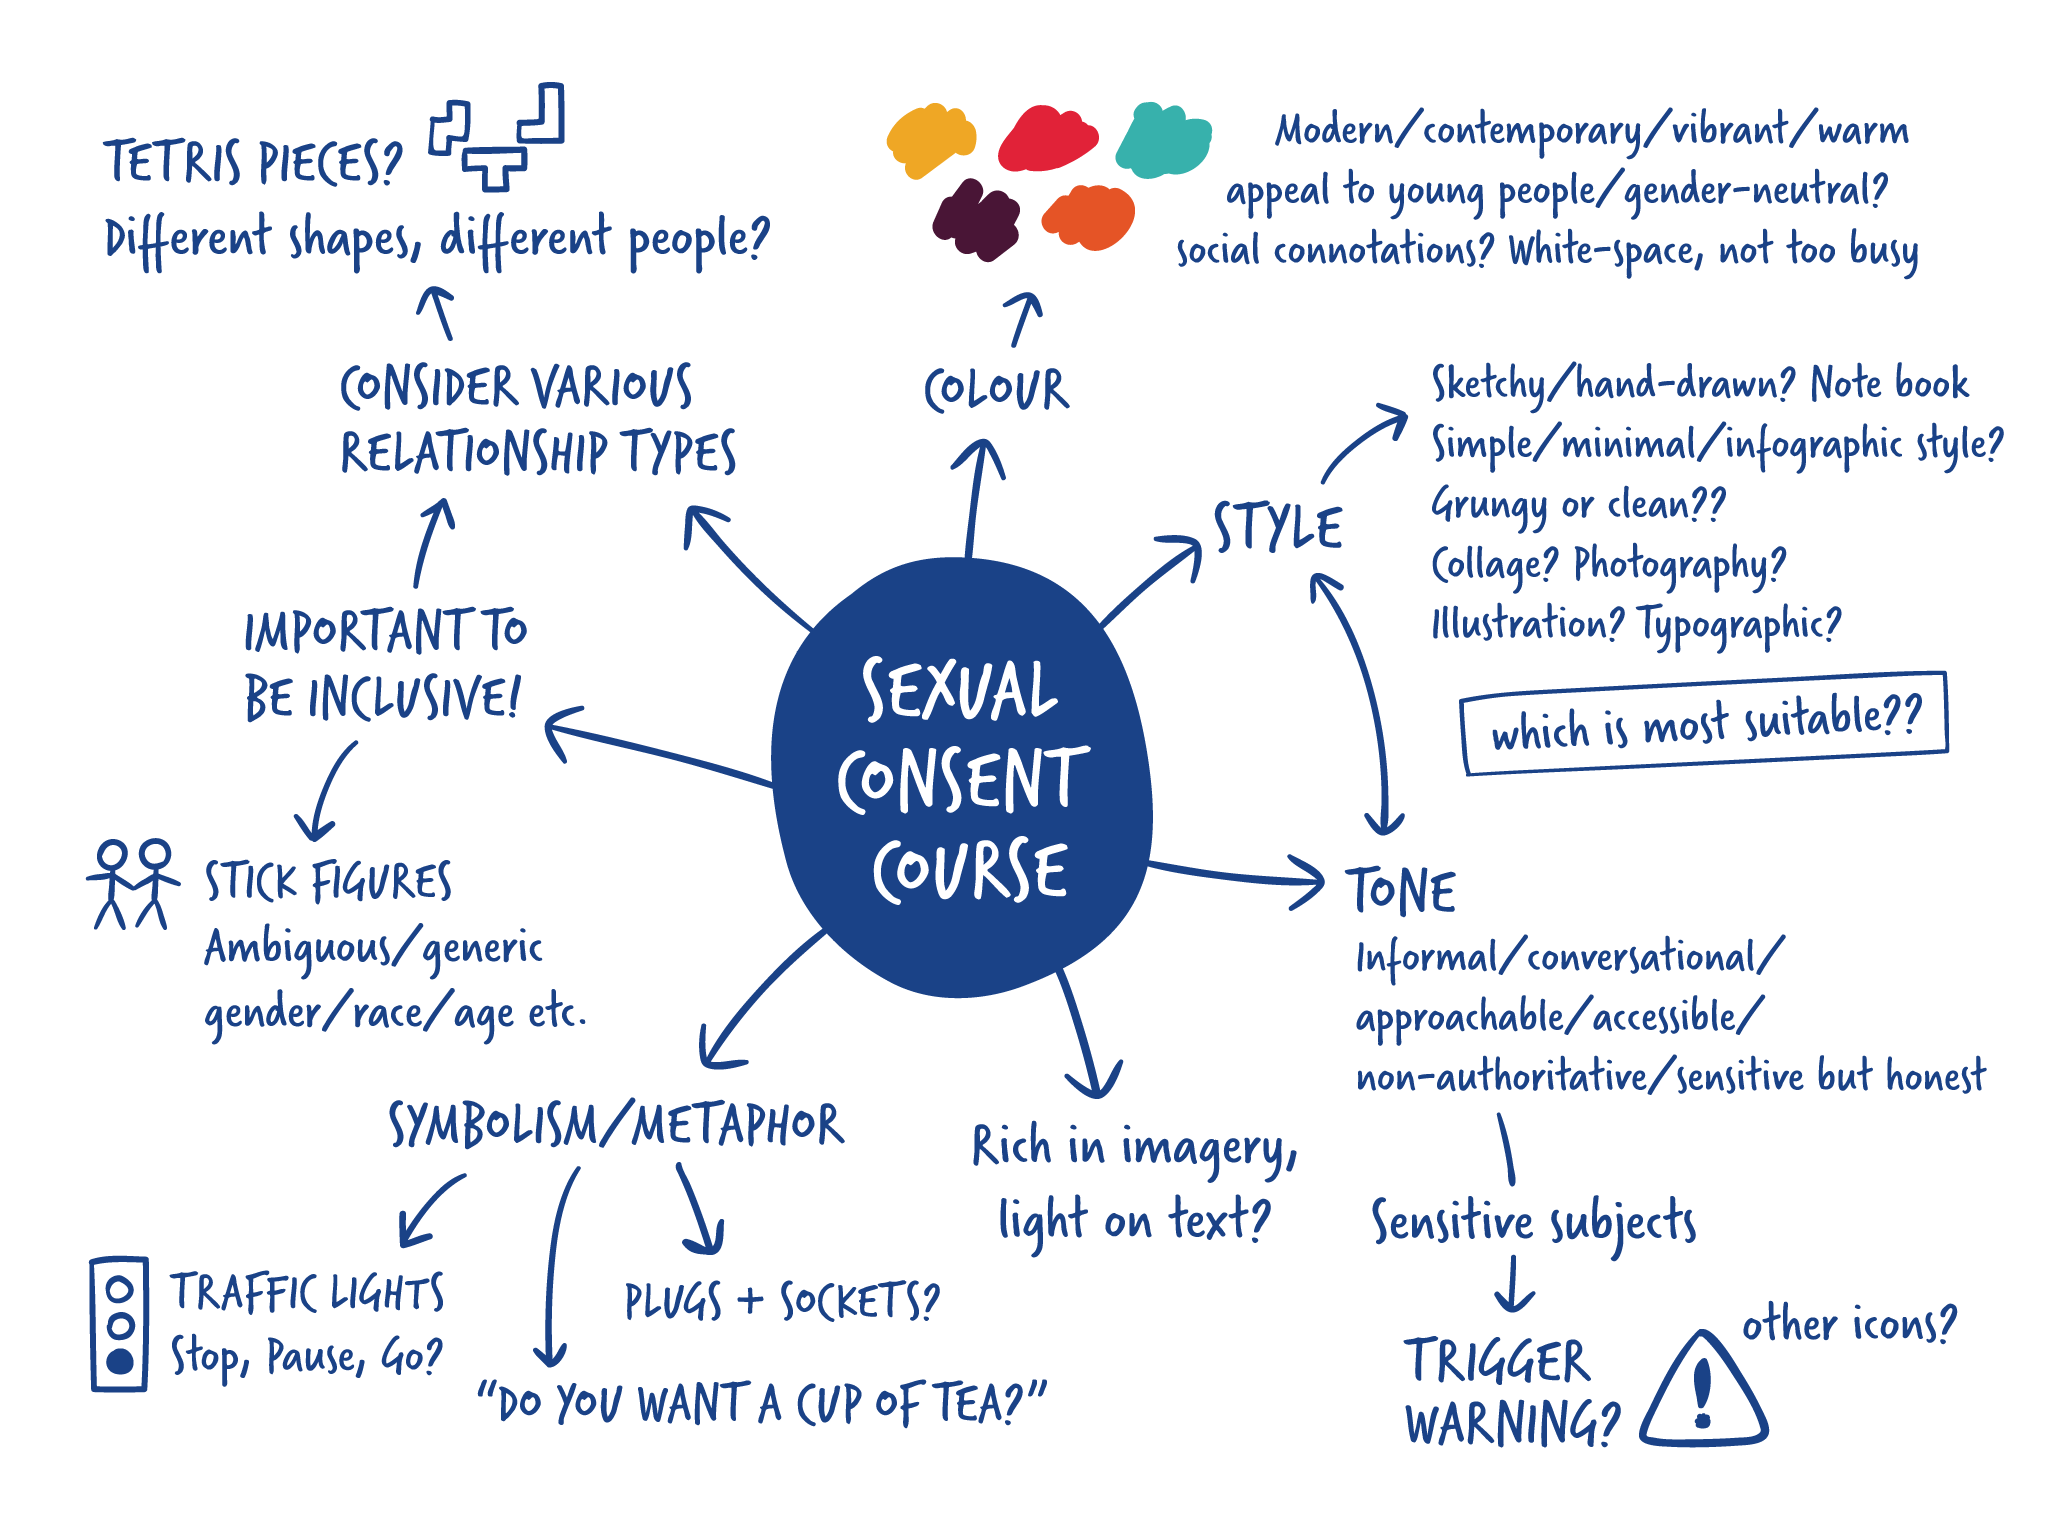 TETRIS PIECES?
Different shapes, different people?
CONSIDER VARIOUS
RELATIONSHIP TYPES
IMPORTANT TO
BE INCLUSIVE!
STICK FIGURES
Ambiguous/generic
gender/race/age etc.
COLOUR
Modern/contemporary/vibrant/warm
appeal to young people/gender-neutral?
social connotations? White-space, not too busy
STYLE
Sketchy/hand-drawn? Note book
Simple/minimal/infographic style?
Grungy or clean??
Collage? Photography?
Illustration? Typographic?
which is most suitable??
SEXUAL
CONSENT
COURSE
TONE
Informal/conversational/
approachable/accessible/
non-authoritative/sensitive but honest
Sensitive subjects
TRIGGER
WARNING?
!
other icons?
Rich in imagery,
light on text?
SYMBOLISM/METAPHOR
TRAFFIC LIGHTS
Stop, Pause, Go?
PLUGS + SOCKETS?
“DO YOU WANT A CUP OF TEA?”